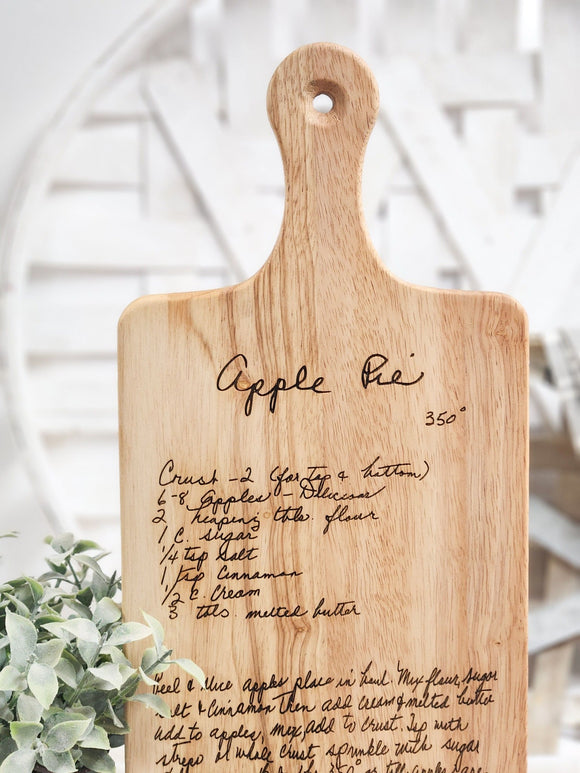 Apple Pie
350°
Crust - 2 (for top & bottom)
6-8 Apples - Delicious
2 heaping tbls. flour
1 C. sugar
1/4 tsp salt
1 tsp Cinnamon
1/2 C. Cream
3 tbls. melted butter
Peel & slice apples place in bowl. Mix flour, sugar
salt & Cinnamon then add cream & melted butter
add to apples, mix, add to crust. Top with
strips or whole crust sprinkle with sugar
350° or till apples are